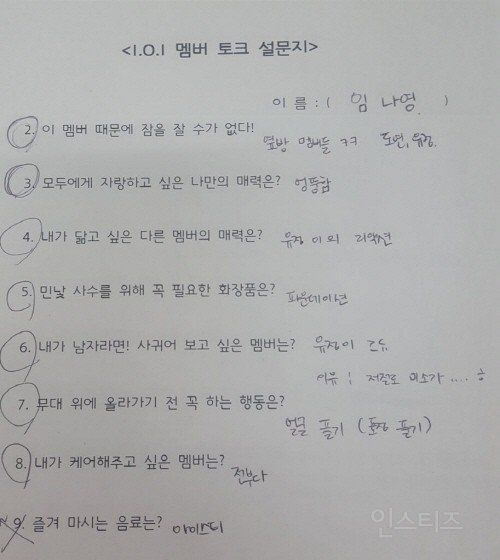 <I.O.I 멤버 토크 설문지>
이 름 : ( 임 나영 )
2. 이 멤버 때문에 잠을 잘 수가 없다!
옆방 멤버들 ㅋㅋ 도연, 유정.
3. 모두에게 자랑하고 싶은 나만의 매력은? 엉뚱함
4. 내가 닮고 싶은 다른 멤버의 매력은? 유정이의 리액션
5. 민낯 사수를 위해 꼭 필요한 화장품은? 파운데이션
6. 내가 남자라면! 사귀어 보고 싶은 멤버는? 유정이
이유 : 저절로 미소가 ....
7. 무대 위에 올라가기 전 꼭 하는 행동은?
얼굴 풀기 (표정 풀기)
8. 내가 케어해주고 싶은 멤버는? 전부다
9. 즐겨 마시는 음료는? 아이스티
인스티즈